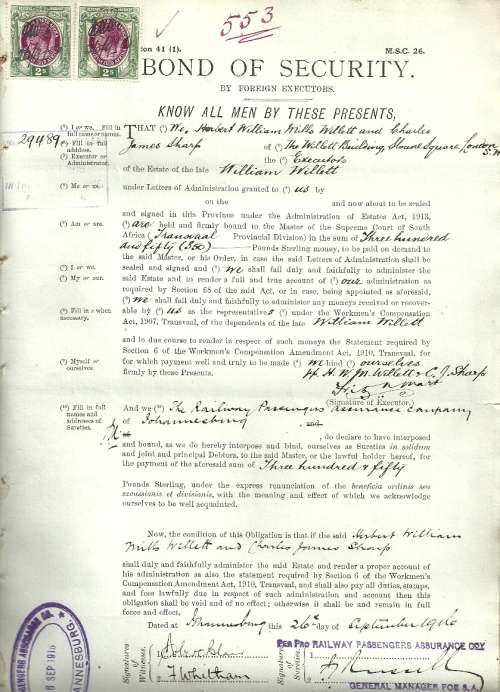 553
Section 41 (1).
M.S.C. 26.
BOND OF SECURITY.
BY FOREIGN EXECUTORS.
KNOW ALL MEN BY THESE PRESENTS,
(¹) I or we. Fill in full names or names.
(²) Fill in full address.
(³) Executor or Administrator
29489
THAT (¹) We, Herbert William Mills Willett and Charles
James Sharp of (²) The Willett Building, Sloane Square, London S.W.
the (³) Executors
of the Estate of the late William Willett
(⁴) Me or us.
under Letters of Administration granted to (⁴) us by
on the and now about to be sealed
and signed in this Province under the Administration of Estates Act, 1913,
(⁵) Am or are.
(⁵) are held and firmly bound to the Master of the Supreme Court of South
Africa (Transvaal Provincial Division) in the sum of Three hundred
and fifty (350) Pounds Sterling money, to be paid on demand to
the said Master, or his Order, in case the said Letters of Administration shall be
(⁶) I or we.
sealed and signed and (⁶) We shall fail duly and faithfully to administer the
(⁷) My or our.
said Estate and to render a full and true account of (⁷) our administration as
required by Section 68 of the said Act, or in case, being appointed as aforesaid,
(⁶) we shall fail duly and faithfully to administer any moneys received or recover-
(⁸) Fill in s when necessary.
able by (⁴) us as the representative s (⁸) under the Workmen's Compensation
Act, 1907, Transvaal, of the dependents of the late William Willett
and in due course to render in respect of such moneys the Statement required by
Section 6 of the Workmen's Compensation Amendment Act, 1910, Transvaal, for
(⁹) Myself or ourselves.
for which payment well and truly to be made (⁶) we bind (⁹) ourselves
firmly by these Presents.
pp H. W. M. Willett & C. J. Sharp
(Signature of Executor.)
(¹⁰) Fill in full names and addresses of Sureties.
And we (¹⁰) The Railway Passengers Assurance Company
of Johannesburg and
, do declare to have interposed
and bound, as we do hereby interpose and bind, ourselves as Sureties in solidum
and joint and principal Debtors, to the said Master, or the lawful holder hereof, for
the payment of the aforesaid sum of Three hundred & fifty
Pounds Sterling, under the express renunciation of the beneficia ordinis seu
excussionis et divisionis, with the meaning and effect of which we acknowledge
ourselves to be well acquainted.
Now, the condition of this Obligation is that if the said Herbert William
Mills Willett and Charles James Sharp
shall duly and faithfully administer the said Estate and render a proper account of
his administration as also the statement required by Section 6 of the Workmen's
Compensation Amendment Act, 1910, Transvaal, and shall also pay all duties, stamps,
and fees lawfully due in respect of such administration and account then this
obligation shall be void and of no effect; otherwise it shall be and remain in full
force and effect.
Dated at Johannesburg this 26th day of September 1916
Signatures of Witnesses.
1
2 F Whitham
Signatures of Sureties.
PER PRO RAILWAY PASSENGERS ASSURANCE COY
1
2
GENERAL MANAGER FOR S.A.